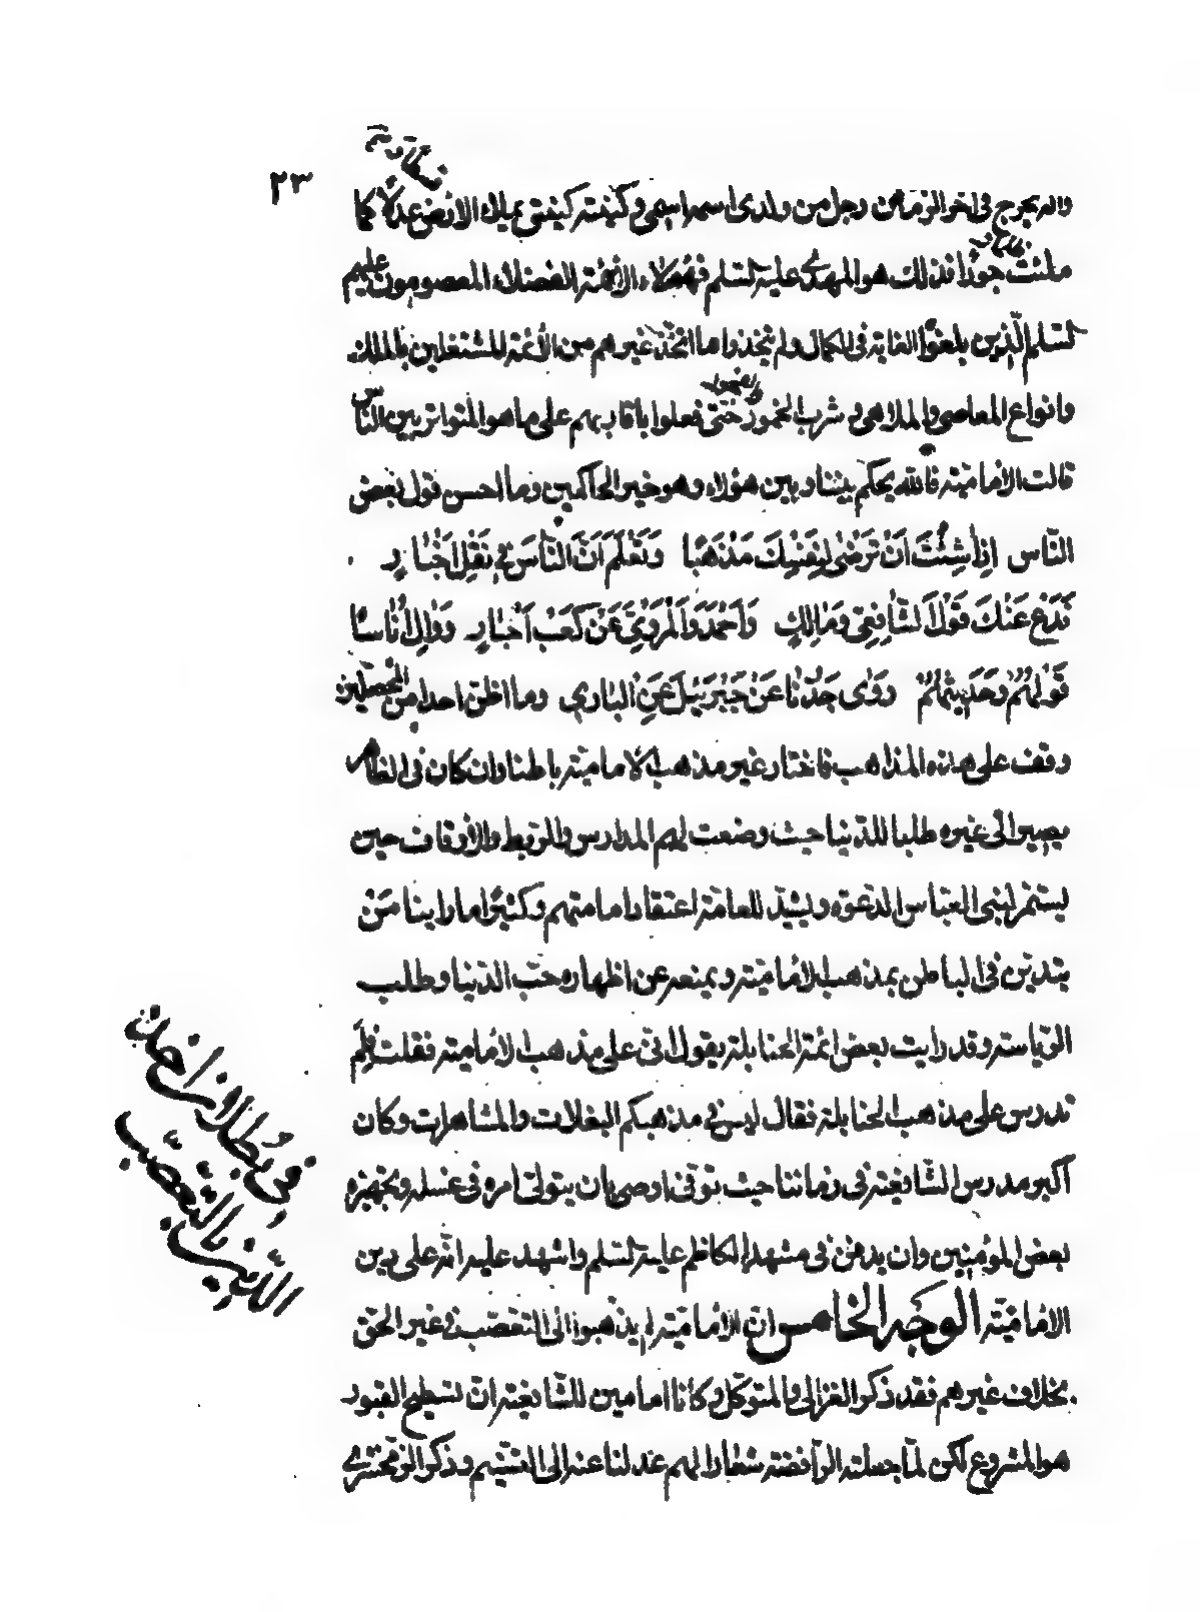 ٢٣
وانه يخرج فى اخر الزمان رجل من ولدى اسمه اسمى وكنيته كنيتى يملأ الارض عدلا كما
ملئت جورا فذلك هو المهدى عليه السلم فهؤلاء الأئمة الفضلاء المعصومون عليهم
السلم الّذين بلغوا الغاية فى الكمال ولم يتخذوا ما اتخذ غيرهم من الأئمة المشتغلين بالملك
وانواع المعاصى والملاهى و شرب الخمور حتى فعلوا باقاربهم على ما هو المتواتر بين الناس
قالت الامامية فالله يحكم بيننا وبين هؤلاء وهو خير الحاكمين وما احسن قول بعض
النّاس اِذا شِئْتَ اَنْ تَرْضٰى لِنَفْسِكَ مَذْهَبًا وَتَعْلَمَ اَنَّ النّاسَ فى نَقْلِ اَخْبارِ
فَدَعْ عَنْكَ قَوْلَ الشّافِعِىّ وَمالِكٍ وَاَحْمَدَ وَالْمَرْوِىَّ عَنْ كَعْبِ اَحْبارِ وَوالِ اُناسًا
قَوْلُهُمْ وَحَديثُهُمْ رَوٰى جَدُّنا عَنْ جَبْرَئيلَ عَنِ البارى وما اظن احدا من المحصلين
وقف على هذه المذاهب فاختار غير مذهب الامامية باطنا وان كان فى الظاهر
يصير الى غيره طلبا للدّنيا حيث وضعت لهم المدارس والربط والأوقاف حين
يستمر لبنى العباس الدعوة ويشيّد للعامة اعتقاد امامتهم وكثيرا ما راينا مَنْ
يتدين فى الباطن بمذهب الامامية ويمنعه عن اظهاره حبّ الدّنيا وطلب
الرياسة وقد رايت بعض ائمة الحنابلة يقول انى على مذهب الامامية فقلت فلِمَ
تدرس على مذهب الحنابلة فقال ليس فى مذهبكم البغلات والمشاهرات وكان
اكبر مدرس الشّافعية فى زماننا حيث توفى اوصى بان يتولى امره فى غسله وتجهيزه
بعض المؤمنين وان يدفن فى مشهد الكاظم عليه السلم واشهد عليه انّه على دين
الامامية الوجه الخامس ان الامامية لم يذهبوا الى التعصّب فى غير الحق
بخلاف غيرهم فقد ذكر الغزالى والمتوكل وكانا امامين للشّافعية انّ تسطيح القبور
هو المشروع لكن لمّا جعلته الرّافضة شعارا لهم عدلنا عنه الى التسنيم وذكر الزمخشرى